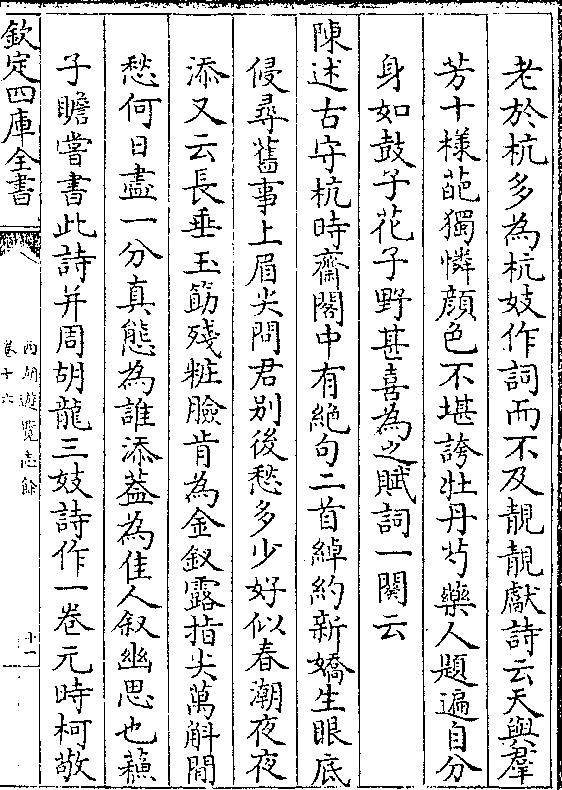 老於杭多為杭妓作詞而不及靚靚獻詩云天與羣
芳十様葩獨憐顔色不堪誇牡丹芍藥人題遍自分
身如鼓子花子野甚喜為之賦詞一闋云
陳述古守杭時齋閣中有絶句二首綽約新嬌生眼底
侵尋舊事上眉尖問君别後愁多少好似春潮夜夜
添又云長垂玉筯殘粧臉肯為金釵露指尖萬斛閒
愁何日盡一分真態為誰添葢為佳人叙幽思也蘓
子瞻嘗書此詩并周胡龍三妓詩作一卷元時柯敬
欽定四庫全書
西湖遊覽志餘
卷十六
十一